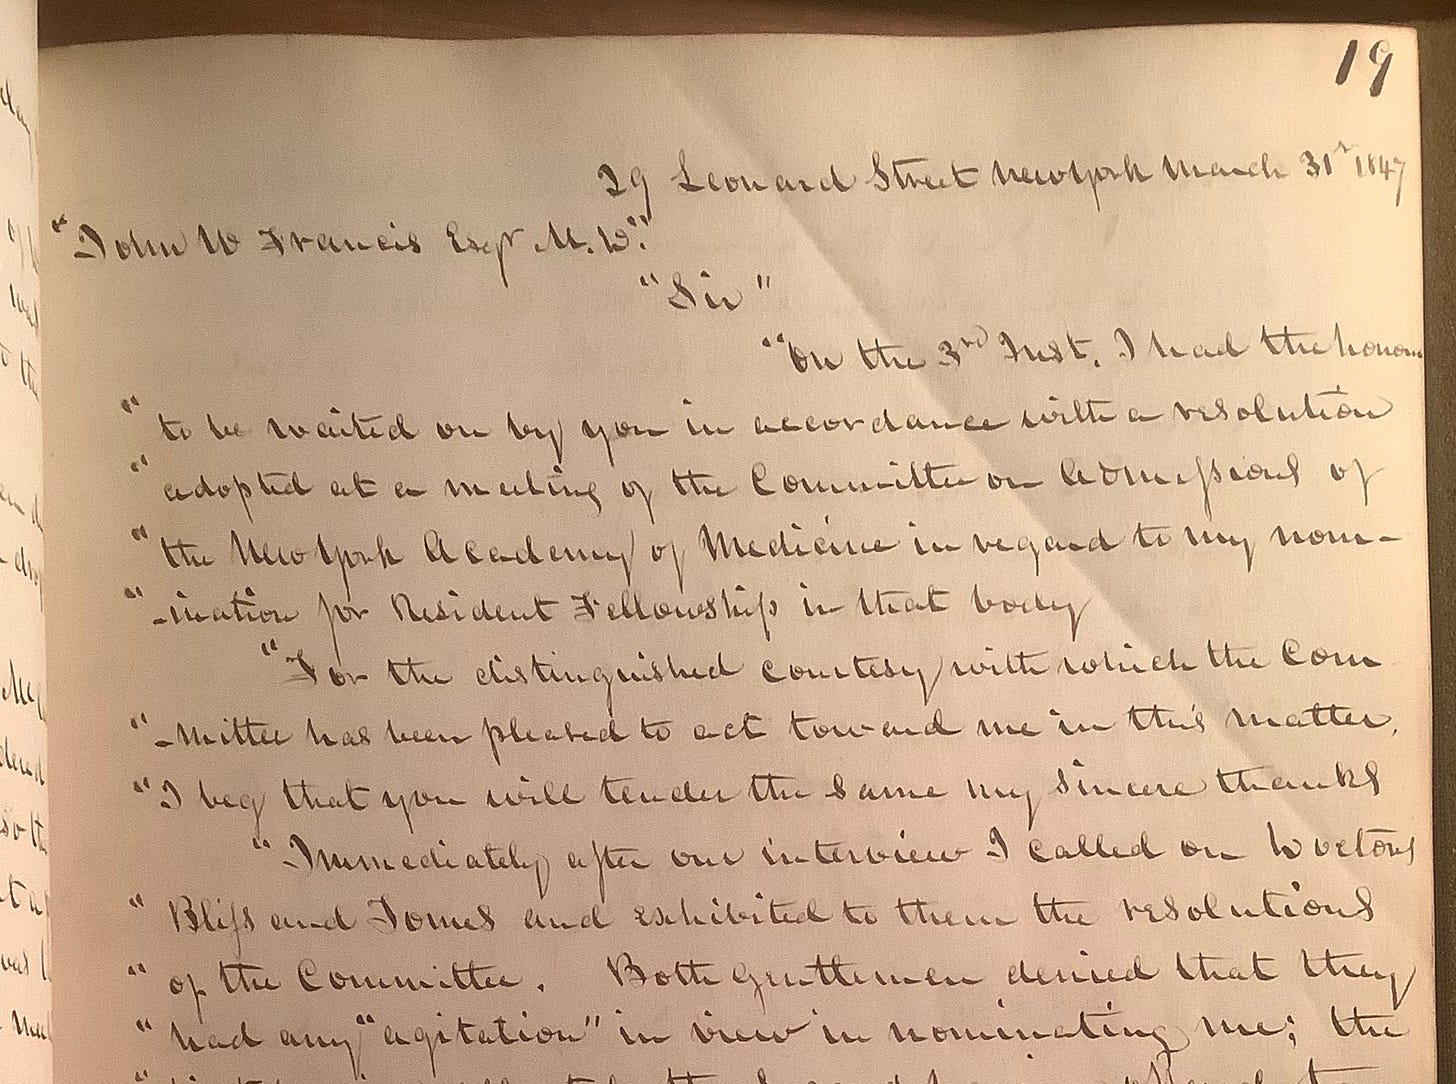 19
29 Leonard Street New York March 31st 1847
"John W Francis Esqr M. D."
"Sir"
"On the 3rd Inst. I had the honour
" to be waited on by you in accordance with a resolution
" adopted at a meeting of the Committee on Admissions of
" the New York Academy of Medicine in regard to my nom-
" -ination for Resident Fellowship in that body
"For the distinguished courtesy with which the Com
" -mittee has been pleased to act toward me in this matter,
"I beg that you will tender the same my sincere thanks
"Immediately after our interview I called on Doctors
" Bliss and Tomes and exhibited to them the resolutions
" of the Committee. Both gentlemen denied that they
" had any "agitation" in view in nominating me; the